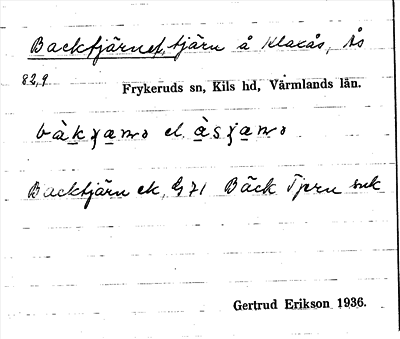 Backtjärnet, tjärn å Klaxås, Ås
82,9
Frykeruds sn, Kils hd, Värmlands län.
el.
Backtjärn ek, G 71 Bäck Tjern suk
Gertrud Erikson 1936.